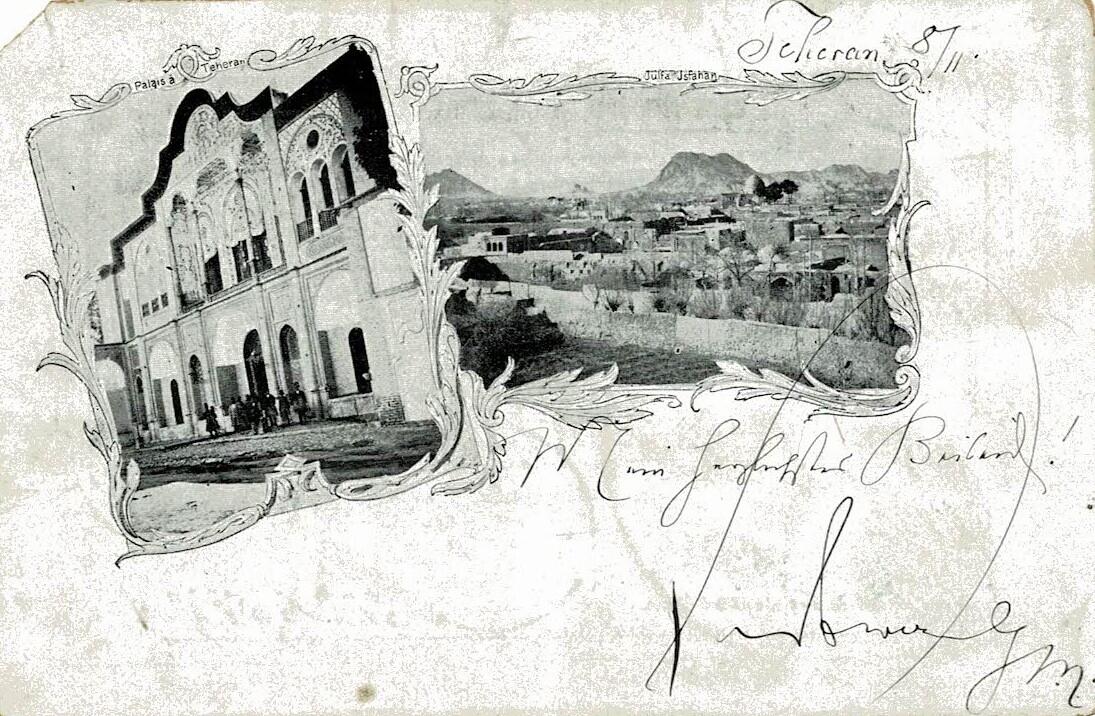 Teheran 8/11.
Palais à Teheran
Julfa Isfahan
Mein herzlichstes Beileid!